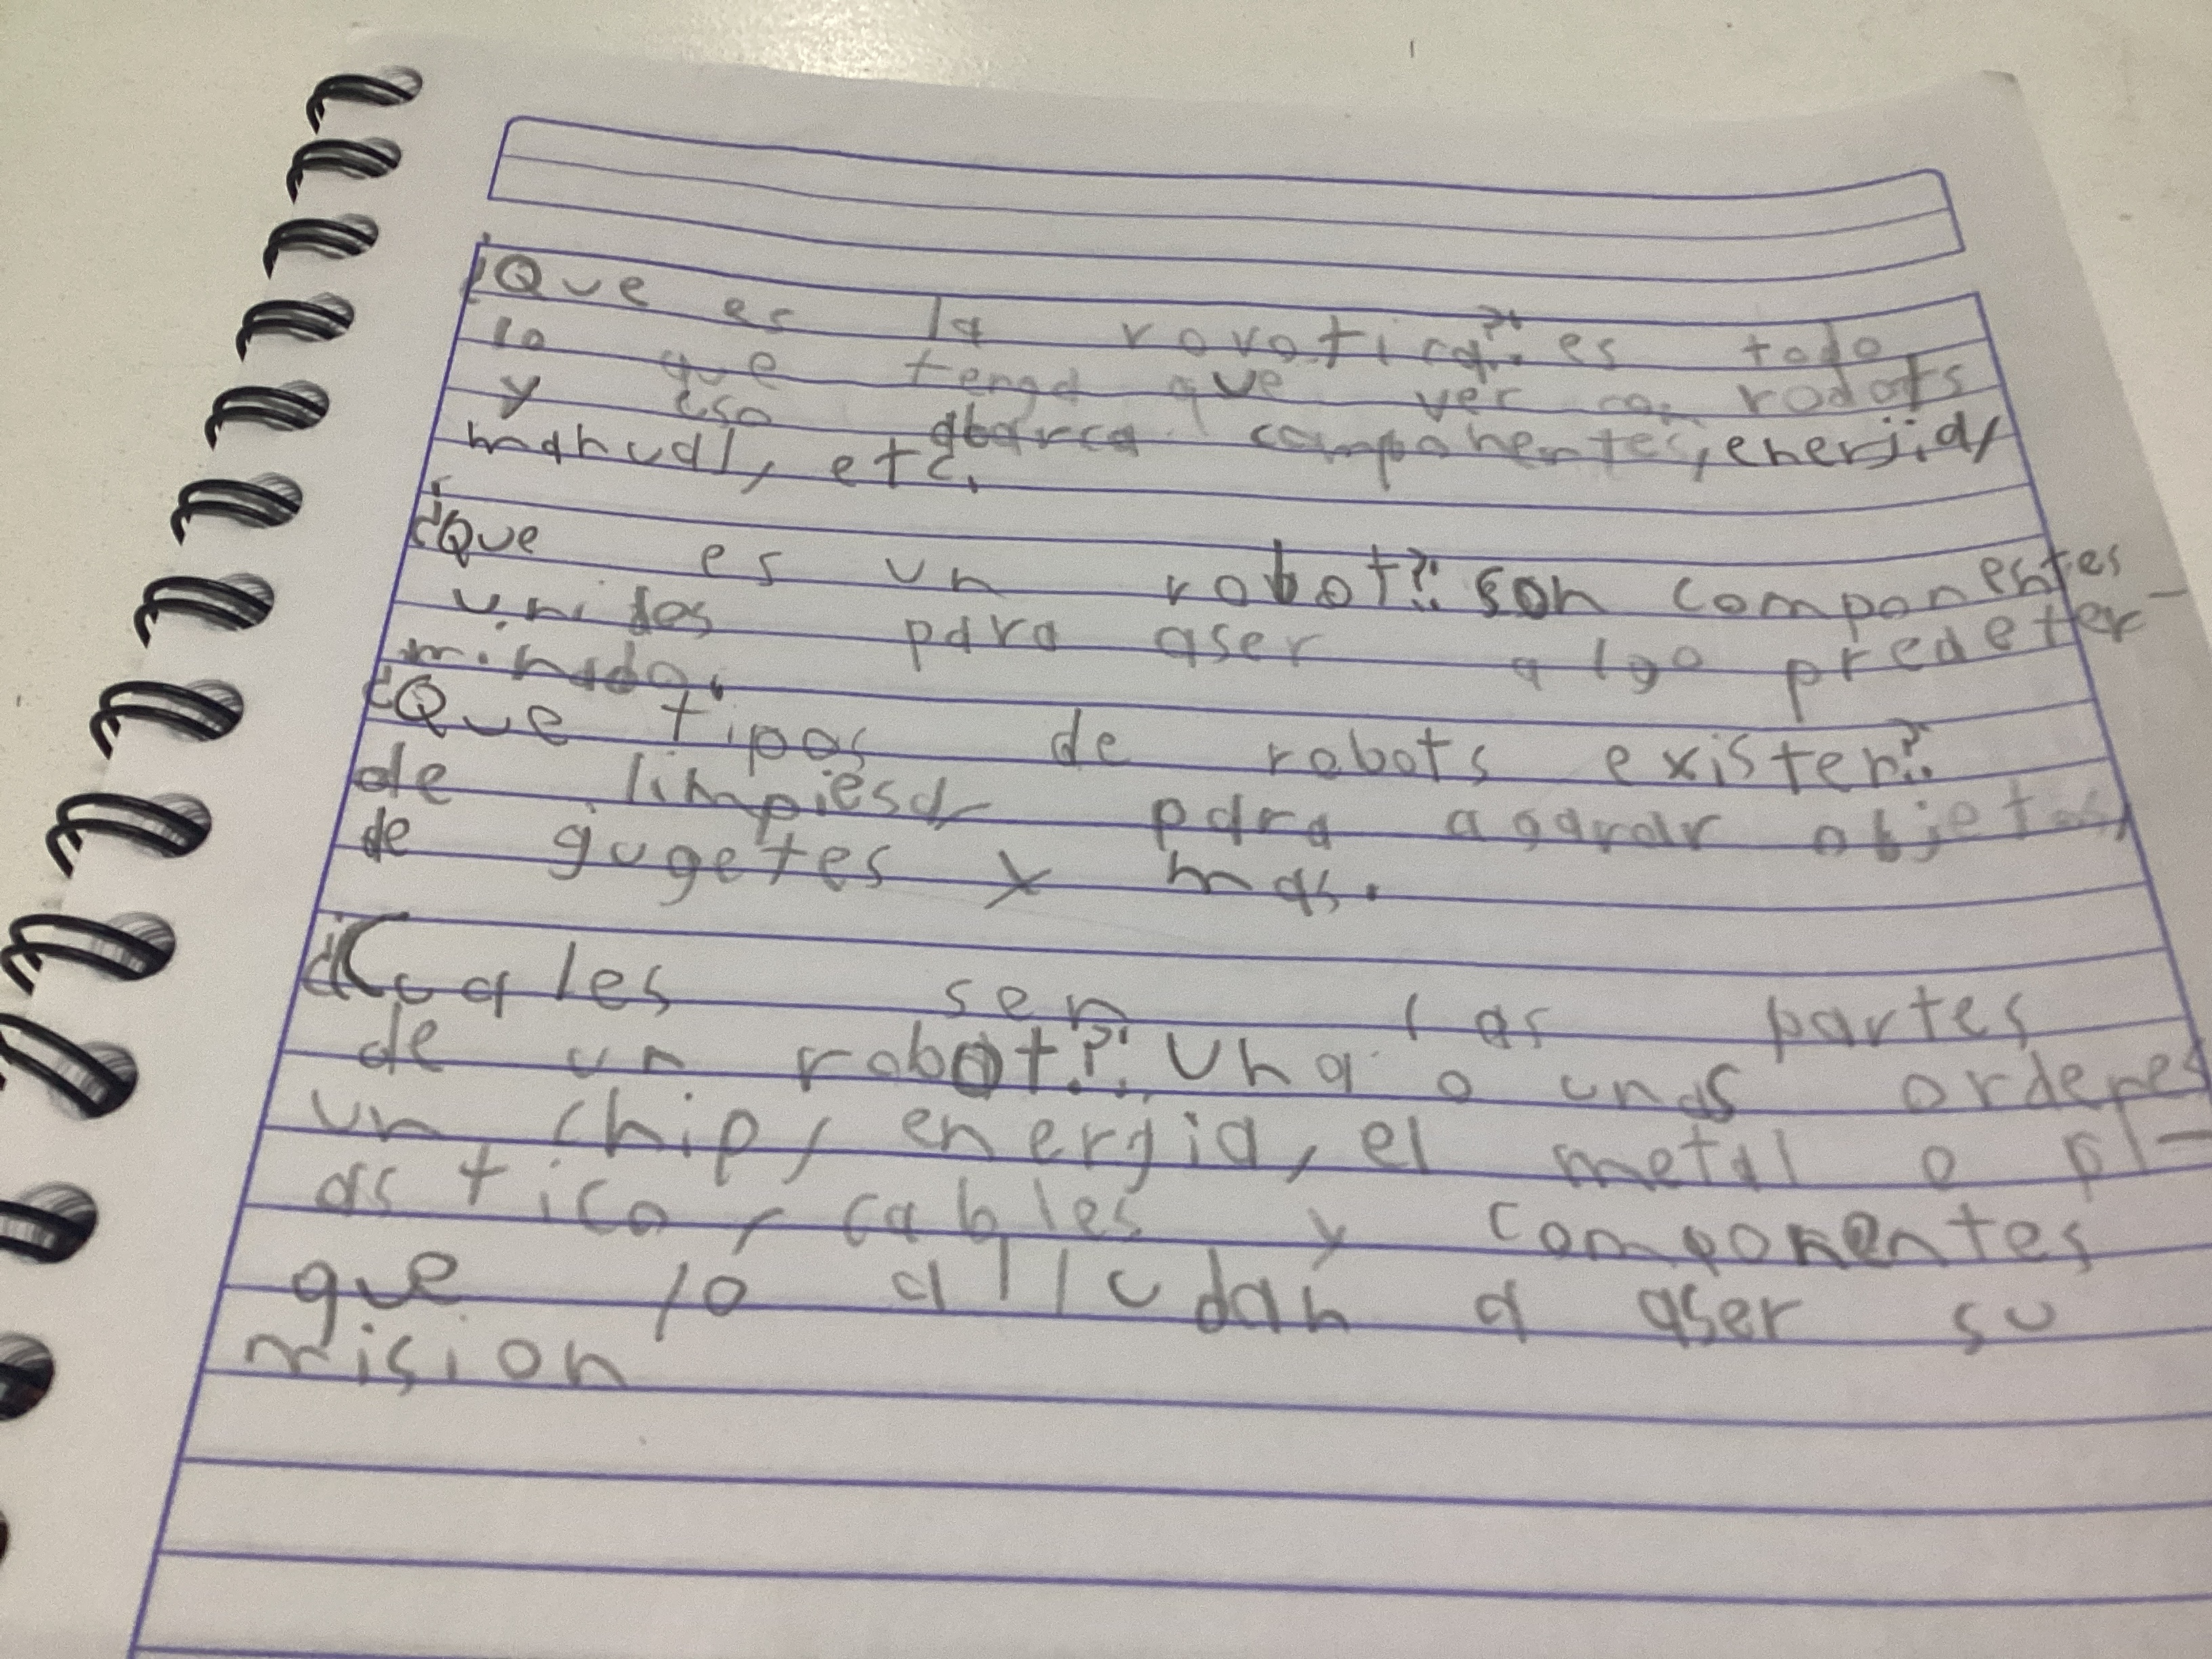 ¿Que es la rovotica?: es todo
lo que tenga que ver con rodots
y eso abarca componentes, enerjia,
manual, etc.
¿Que es un robot?: son componentes
unidos para aser algo predeter-
minado.
¿Que tipos de robots existen?:
de limpiesa, para agarar objetos,
de gugetes y mas.
¿Cuales sen las partes
de un robot?: Una o unas ordenes
un chip, energia, el metal o pl-
astico, cables y componentes
que lo alludan a aser su
mision